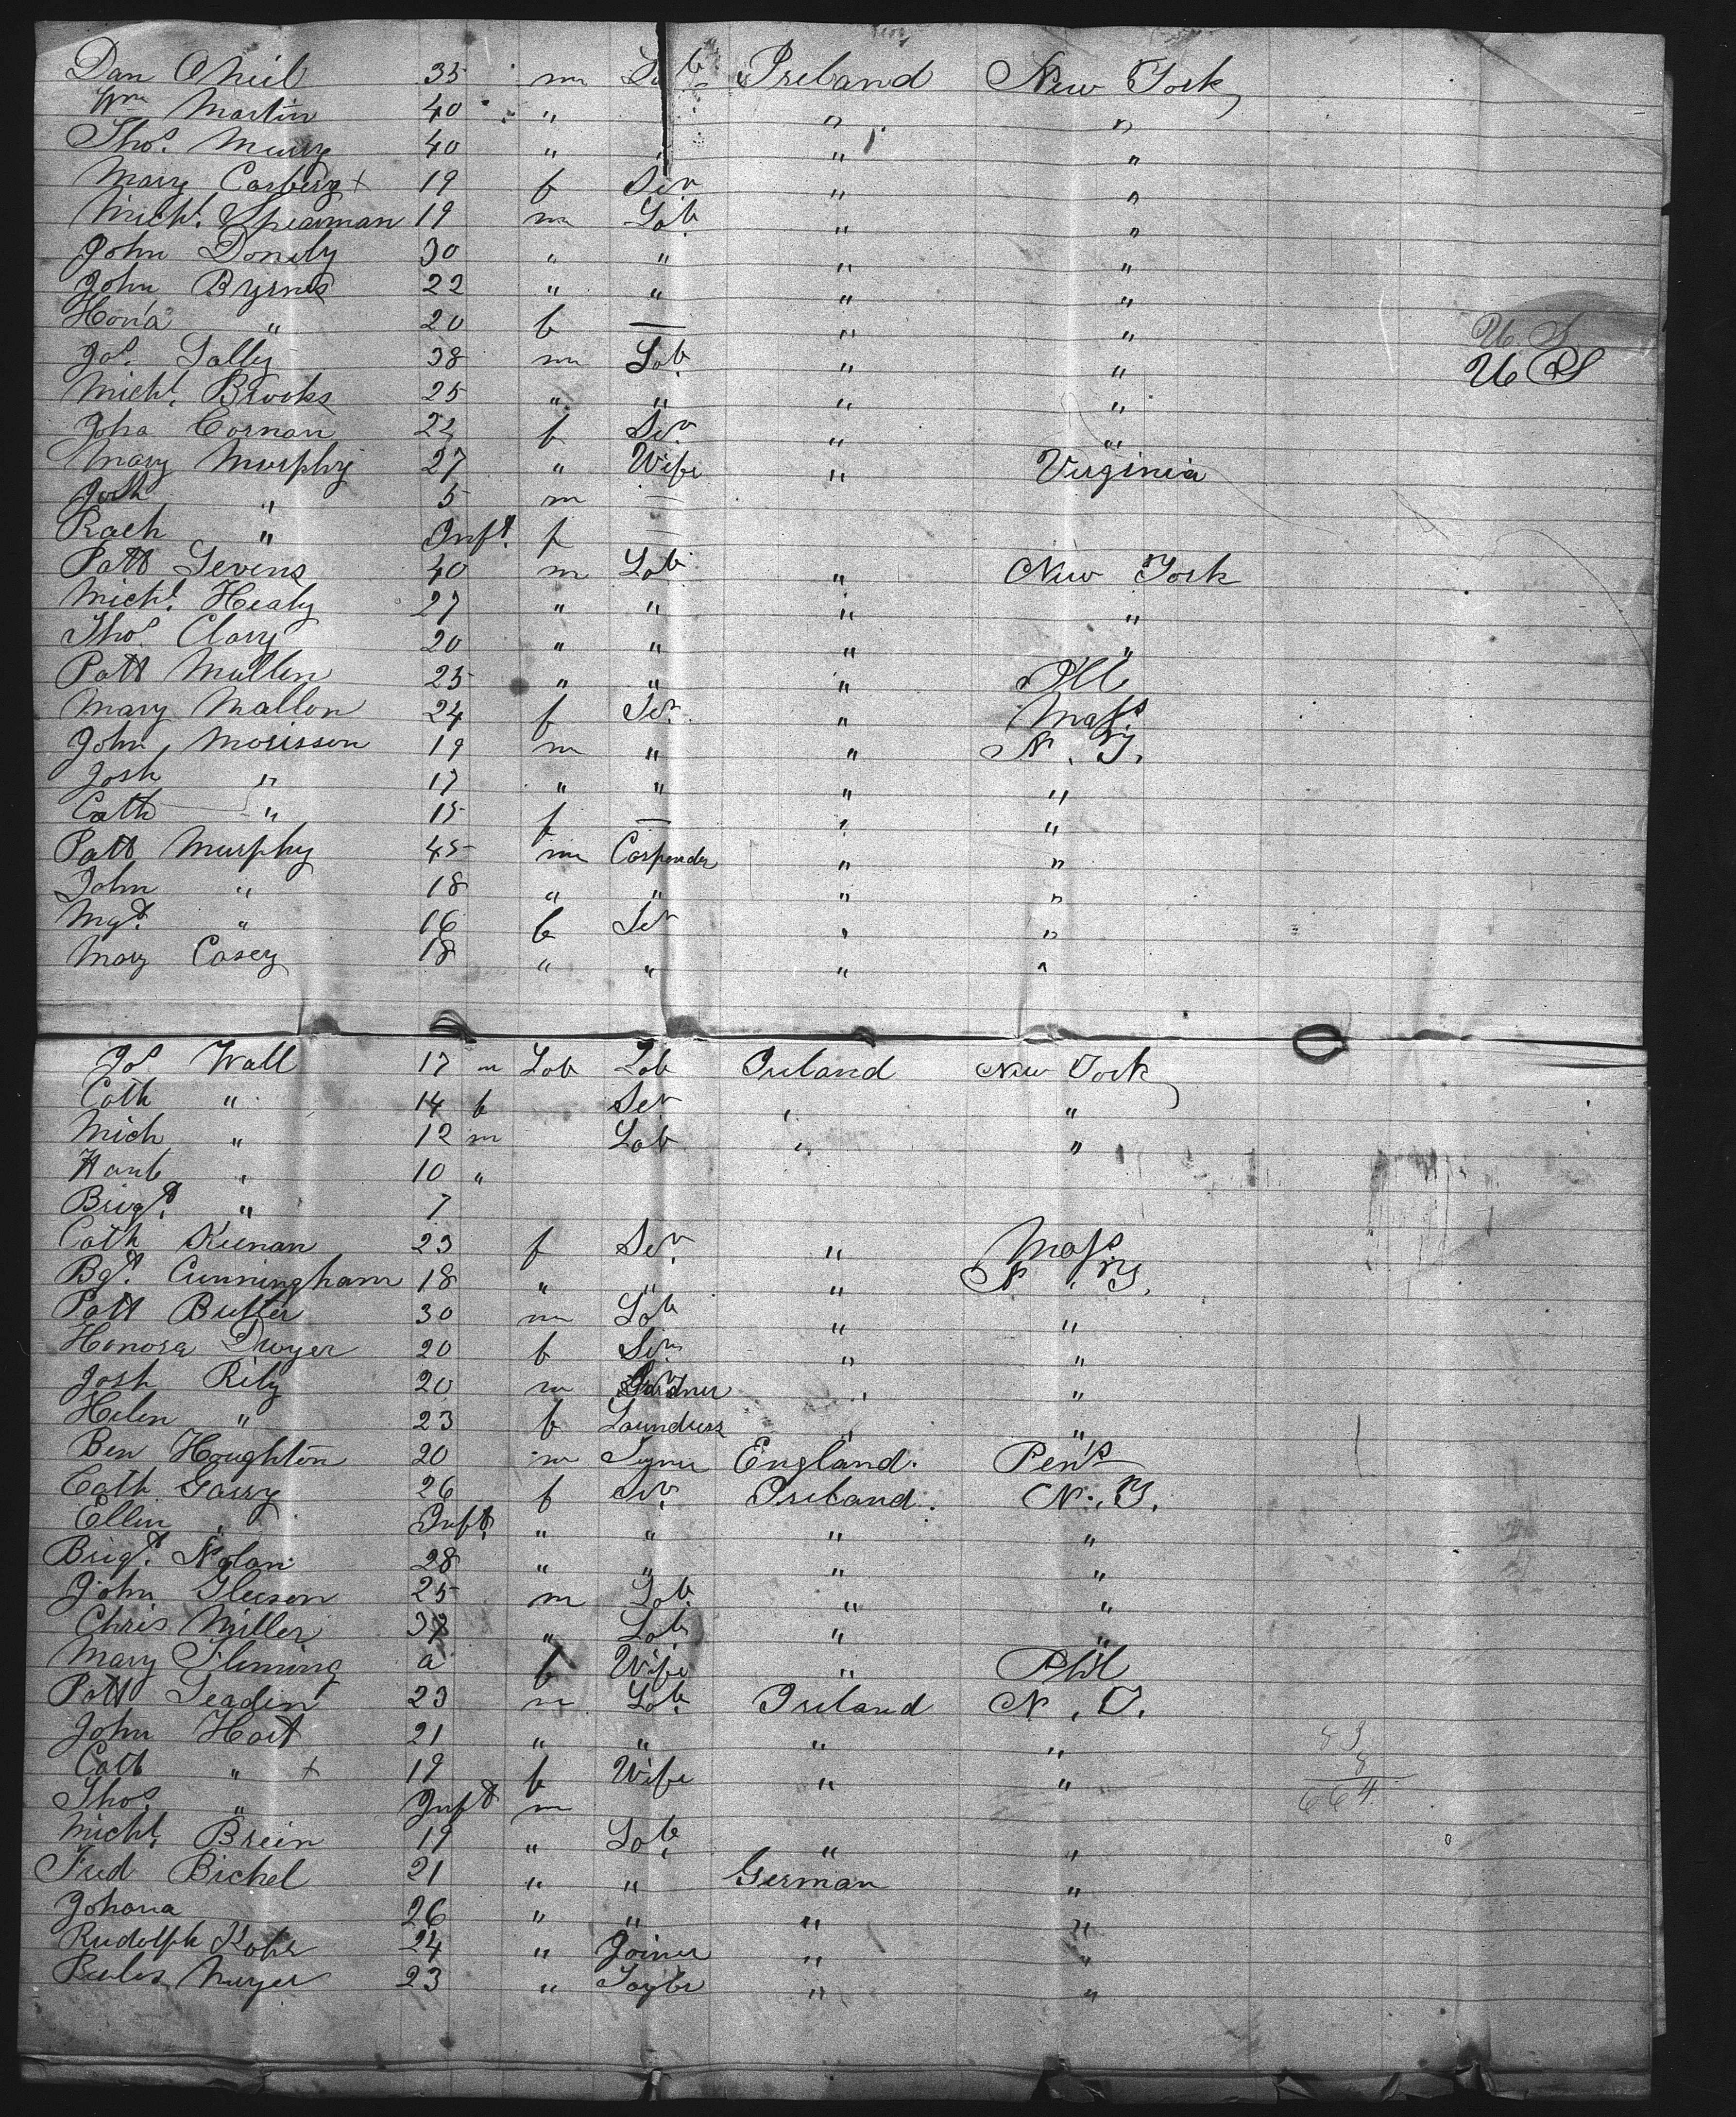 Dan Oneil 35 m Lab Ireland New York
Wm Martin 40 " " "
Thos. Murry 40 " " "
Mary Carberry + 19 f Ser " "
Michl. Shearman 19 m Lab. " "
John Donely 30 " " " "
John Byrnes 22 " " " "
Hona " 20 f — " " U. S.
Jas. Lally 38 m Lab. " " U S
Michl. Brooks 25 " " " "
Joha Cornan f Ser. " "
Mary Murphy 27 " Wife " Virginia
Josh " 5 m —
Rach " Inft. f —
Patt Levins 40 m Lab " New York
Michl. Healy 27 " " " "
Thos Clary 20 " " " "
Patt Mullen 25 " " " Ill
Mary Mallon 24 f Ser. " Mass.
John Morisson 19 m " " N. Y.
Josh " 17 " " " "
Cath " 15 f — " "
Patt Murphy 45 m Carpender " "
John " 18 " " " "
Mgt. " 16 f Ser " "
Mary Casey 18 " " " "
Jas Wall 17 m Lab Lab Ireland New York
Cath " 14 f Ser " "
Mich " 12 m Lab " "
" 10 "
Brigt. " 7
Cath Keenan 23 f Ser. " Mass
Bgt. Cunningham 18 " " " N. Y.
Patt Butler 30 m Lab " "
Honora Dwyer 20 f Ser. " "
Josh Rily 20 m Gardner " "
Helen " 23 f Laundress " "
Ben Houghton 20 m England. Penns
Cath Garry 26 f Ser. Ireland. N. Y.
Ellin " Inft. " " " "
Brigt. Nolan 28 " " " "
John Gleeson 25 m Lab. " "
Chris Miller " Lab " "
Mary Fleming a f Wife " Phil
Patt Leadin 23 m Lab. Ireland N. Y.
John Hart 21 " " " "
Cath " + 19 f Wife " "
Thos. " Inft m
Michl. Brein 19 " Lab. " "
Fred Bichel 21 " " German "
Johana 26 " " " "
Rudolph 24 " Joiner " "
Meyer 23 " " "
83
8
664